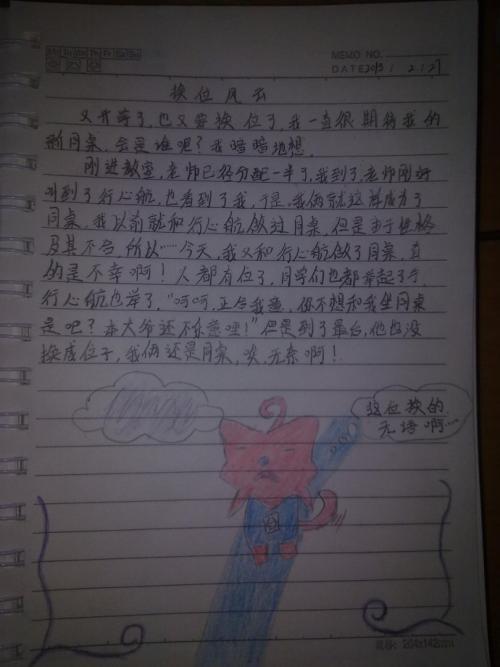 MEMO NO.
DATE 2013 / 2 / 27
换位风云
又开学了,也又要换位了,我一直很期待我的
新同桌,会是谁呢?我暗暗地想。
刚进教室,老师已经分配一半了,我到了,老师刚好
叫到了行心航,也看到了我,于是,我俩就这样成为了
同桌,我以前就和行心航做过同桌,但是由于性格
及其不合所以……今天,我又和行心航做了同桌,真
的是不幸啊!人都有位了,同学们也都举起了手,
行心航也举了,“呵呵,正合我意,你不想和我坐同桌
是吧?本大爷还不乐意哩!”但是到了最后,他也没
换成位子,我俩还是同桌,唉,无奈啊!
这位换的
无语啊…
规格: 204x142mm